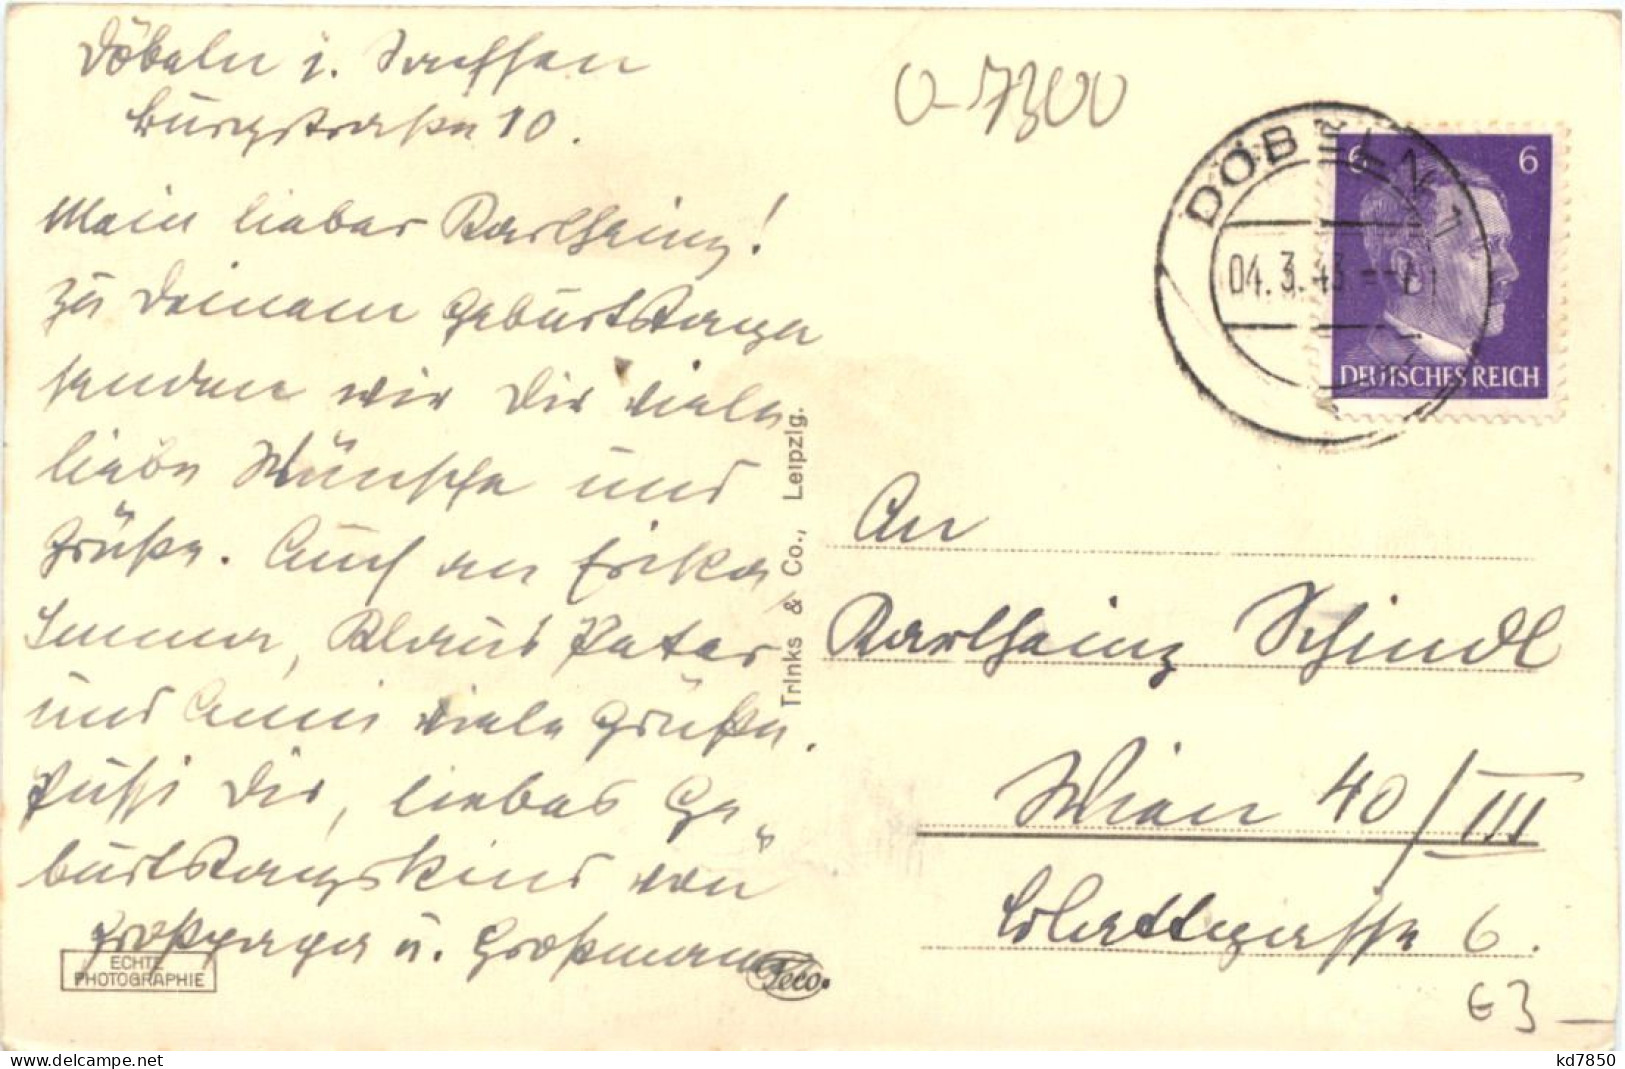 Döbeln i. Sachsen
Burgstraße 10.
Mein lieber Karlheinz!
Zu Deinem Geburtstage
senden wir Dir viele
liebe Wünsche und
Grüße. Auch an Erika
Imma, Klaus Peter
und Anni viele Grüße.
Pussi Dir, liebes Ge-
burtstagskind von
Großpapa u. Großmama
ECHTE
PHOTOGRAPHIE
Teco.
Trinks & Co., Leipzig.
0-7300
DÖBELN 1
04.3.43
6
6
DEUTSCHES REICH
An
Karlheinz Schindl
Wien 40/III
6.
63
kd7850
www.delcampe.net